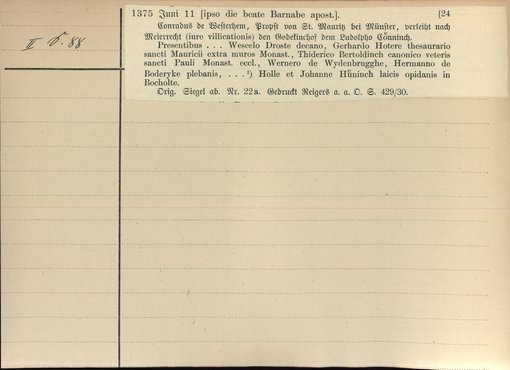 1375 Juni 11 [ipso die beate Barnabe apost.]. [24
Conradus de Westerhem, Propst von St. Mauritz bei Münster, verleiht nach
Meierrecht (iure villicationis) den Godekinchof dem Ludolpho Cönninch.
Presentibus . . . Wescelo Droste decano, Gerhardo Hotere thesaurario
sancti Mauricii extra muros Monast., Thiderico Bertoldinch canonico veteris
sancti Pauli Monast. eccl., Wernero de Wydenbrugghe, Hermanno de
Boderyke plebanis, . . . ¹) Holle et Johanne Hüninch laicis opidanis in
Bocholte.
Orig. Siegel ab. Nr. 22a. Gedruckt Reigers a. a. O. S. 429/30.
II S. 88